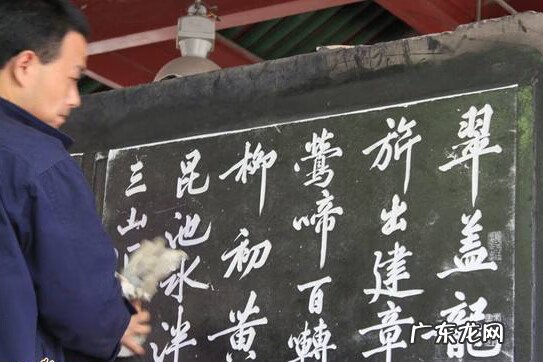 翠盖龍
旂出建章
鶯啼百轉
柳初黄
昆池水泮
三山
广东龙网